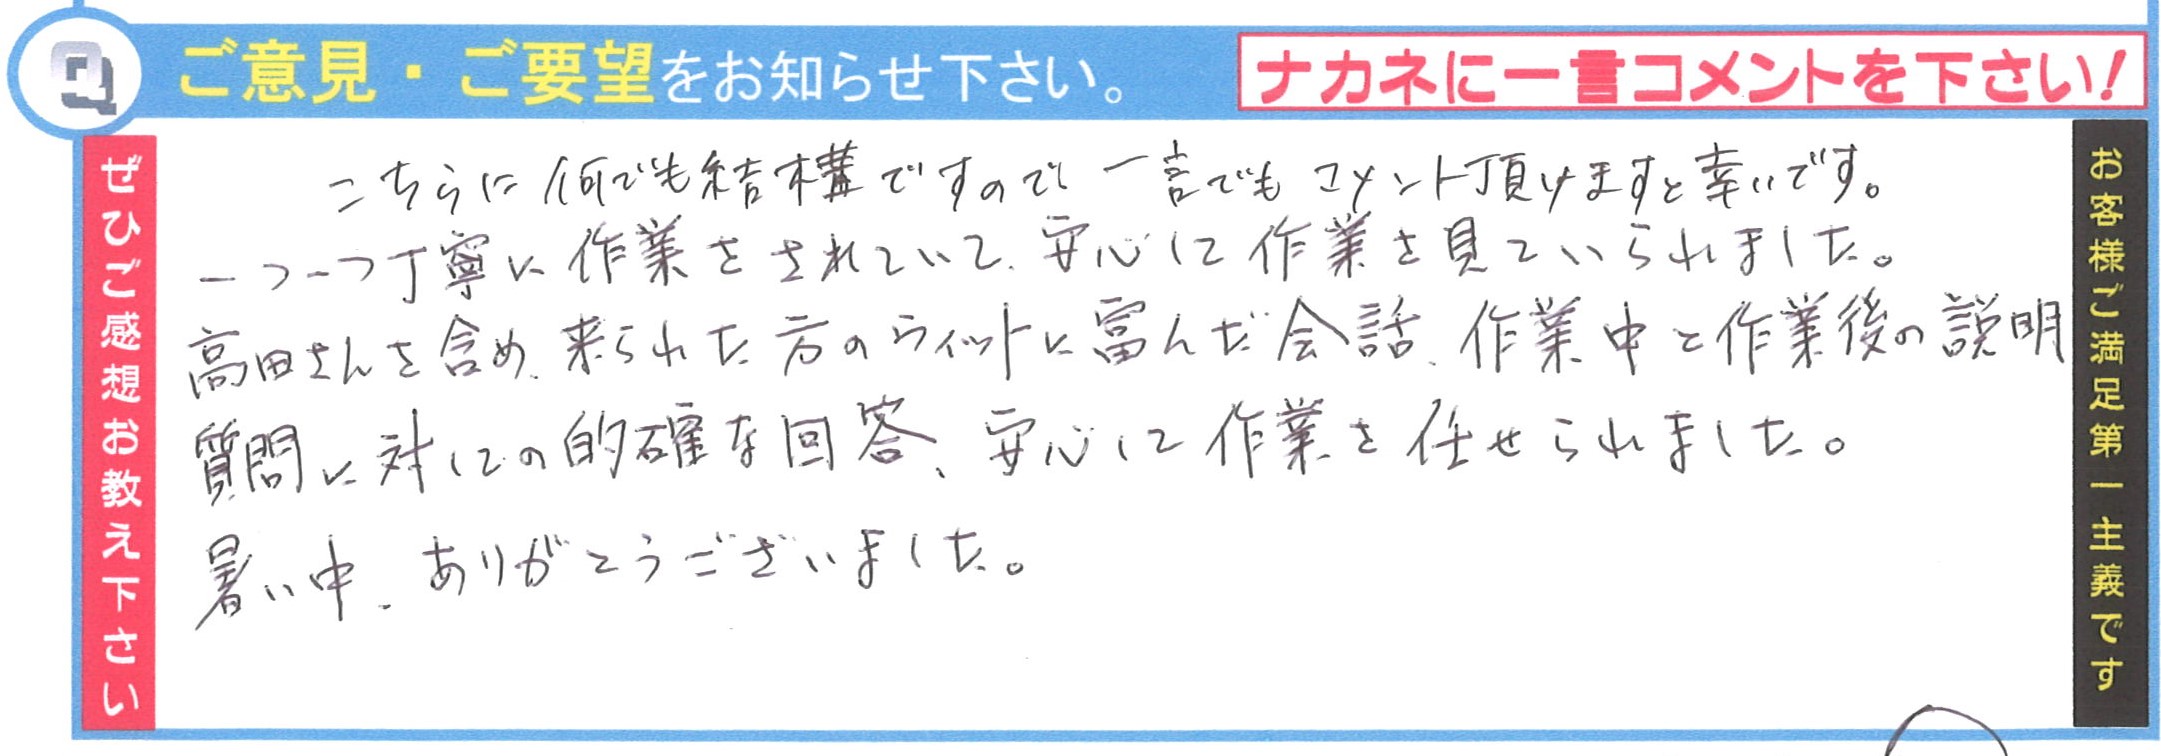 Q ご意見・ご要望をお知らせ下さい。 ナカネに一言コメントを下さい!
ぜひご感想お教え下さい
こちらに何でも結構ですので一言でもコメント頂けますと幸いです。
一つ一つ丁寧に作業をされていて、安心して作業を見ていられました。
高田さんを含め、来られた方のウィットに富んだ会話、作業中と作業後の説明
質問に対しての的確な回答、安心して作業を任せられました。
暑い中、ありがとうございました。
お客様ご満足第一主義です